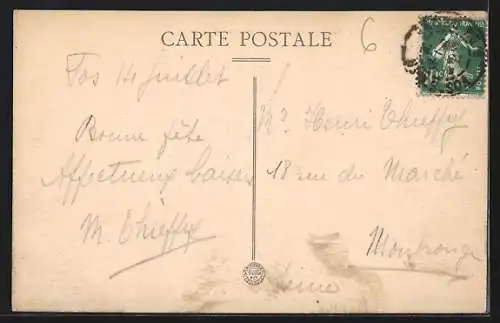 CARTE POSTALE
6
Fos 14 juillet
Bonne fête
Affectueux baisers
M. Thieffry
Mr Henri Thieffry
18 rue du Marché
Montrouge
Seine